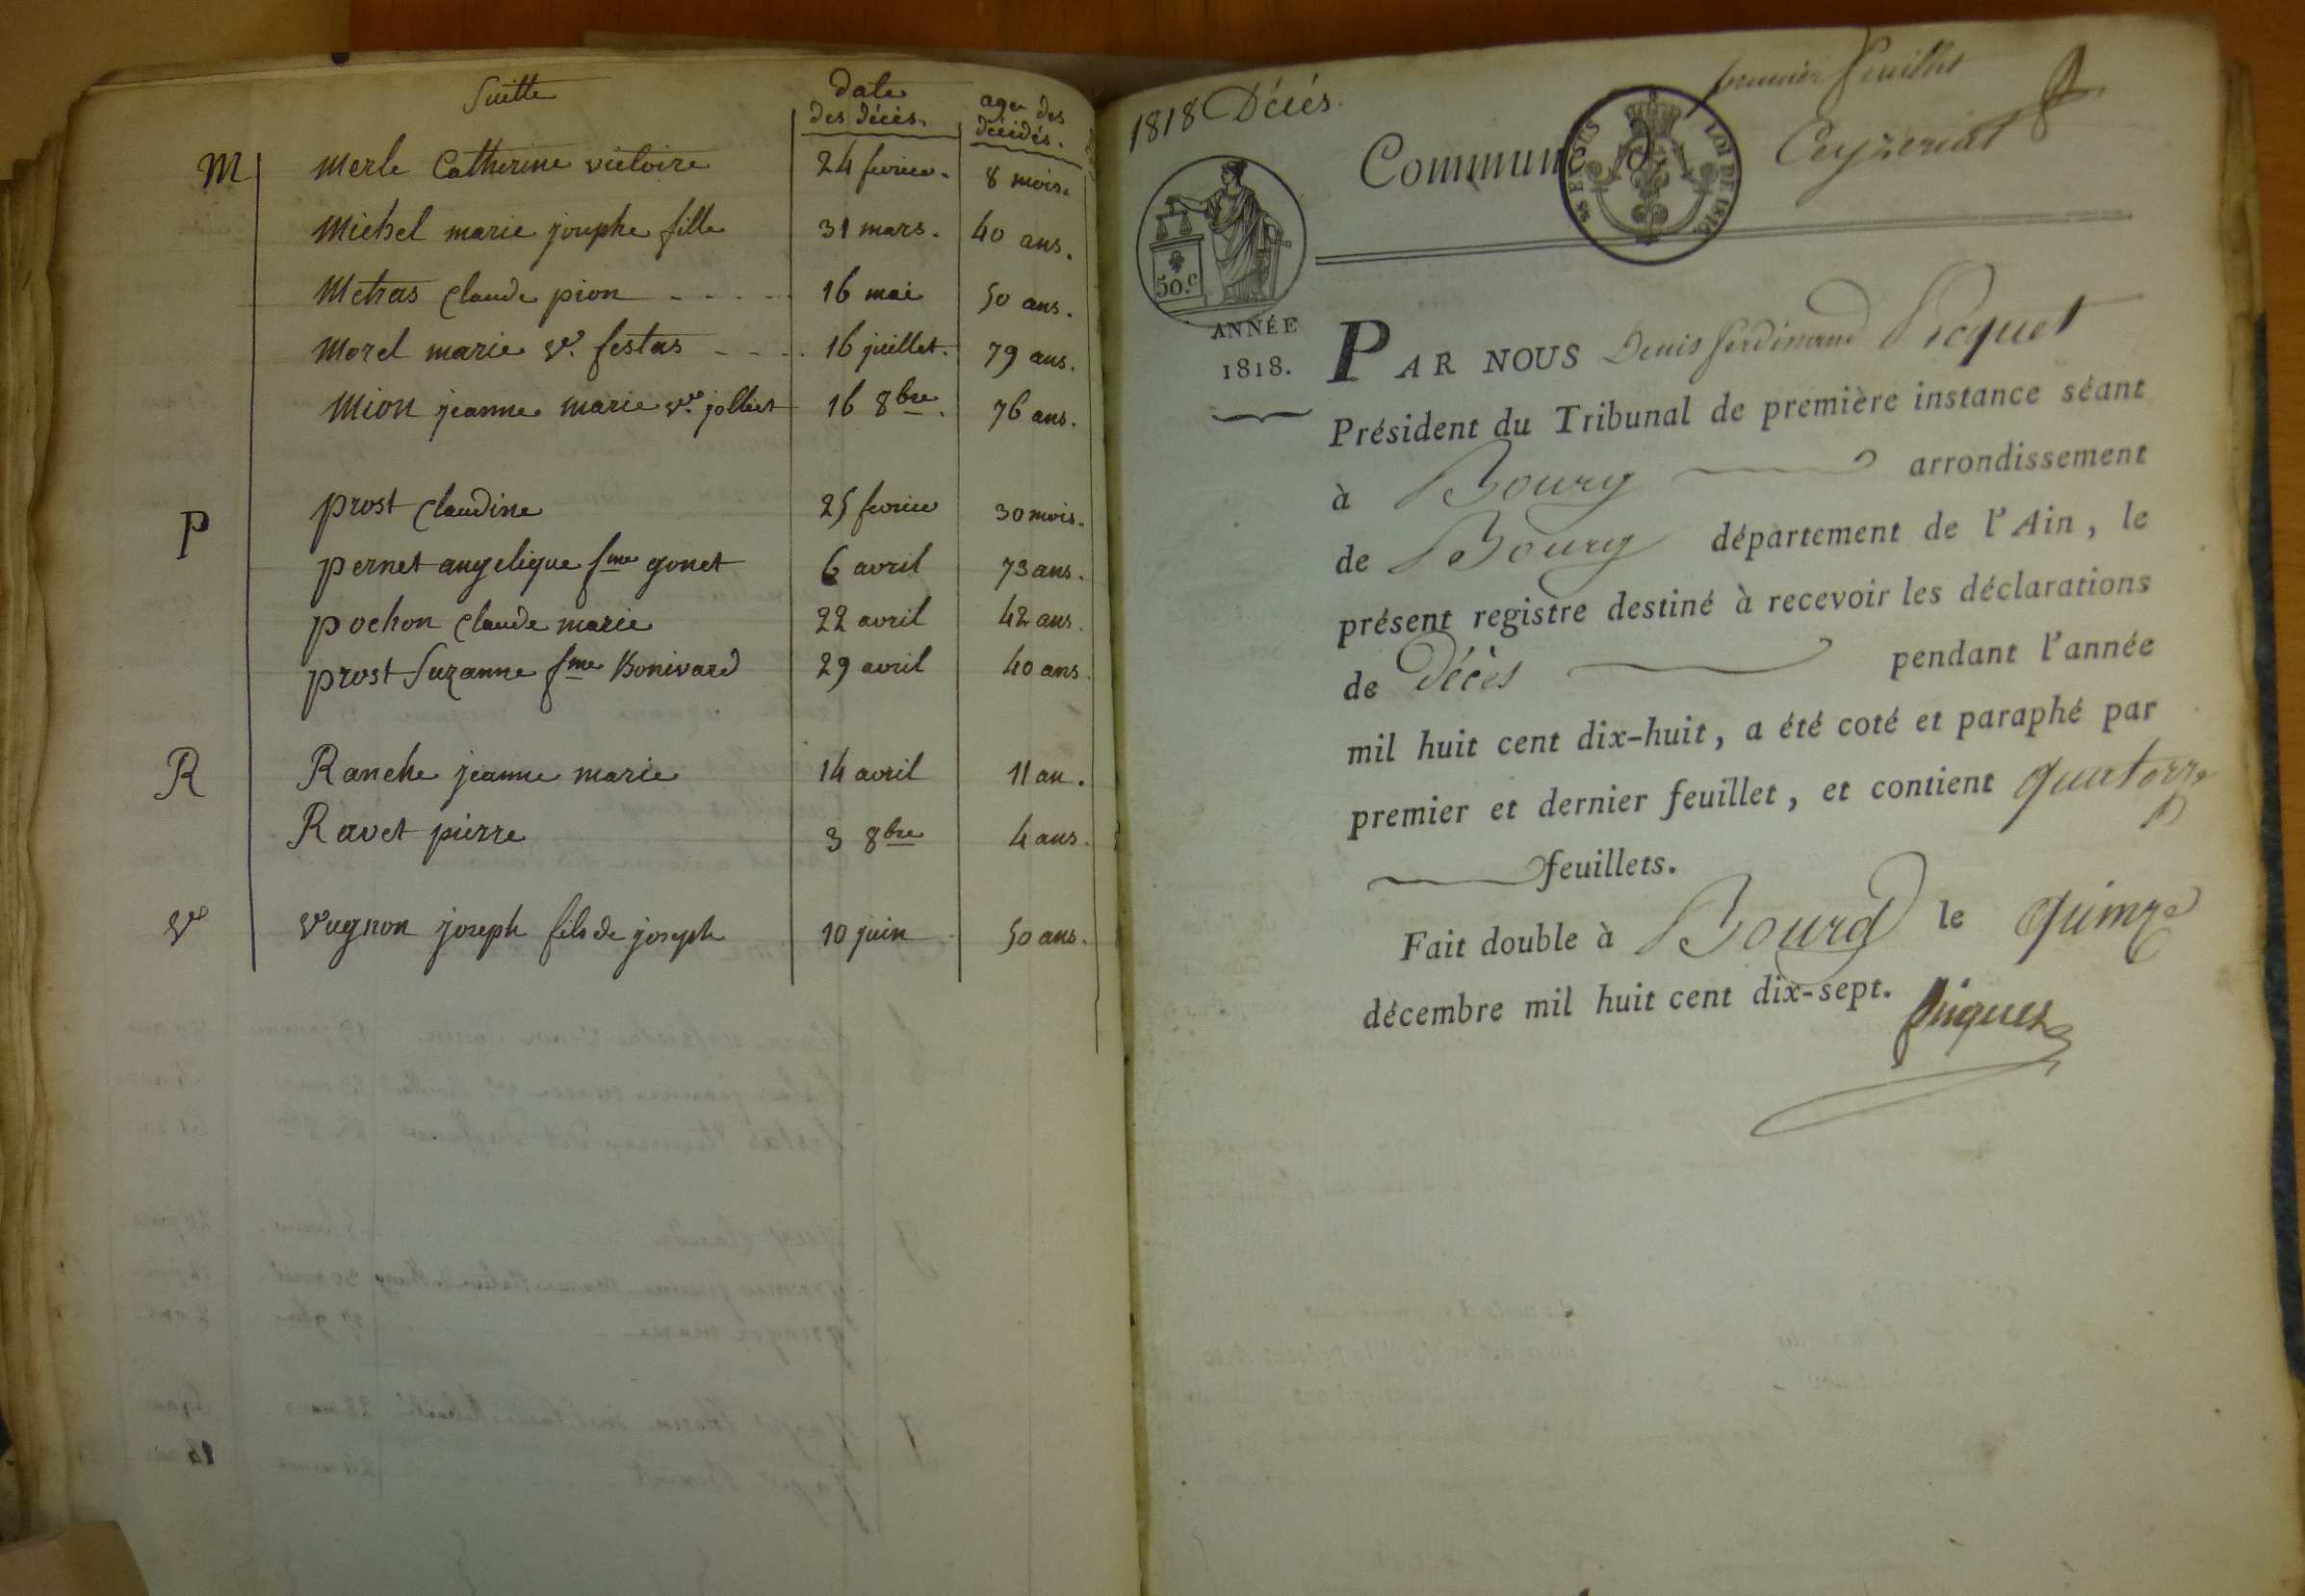 Suitte
date
des décès.
age des
décédés.
M Merle Catherine victoire 24 fevrier. 8 mois.
Michel marie josephe fille 31 mars. 40 ans.
Metras claude pion - - - - - 16 mai 50 ans.
Morel marie ve. festas - - - - 16 juillet. 79 ans.
Mion jeanne marie vve. jolliet 16 8bre. 76 ans.
P prost claudine 25 fevrier 30 mois.
pernet angelique fme gonet 6 avril 73 ans.
pochon claude marie 22 avril 42 ans.
prost Suzanne fme Bonivard 29 avril 40 ans.
R Ranche jeanne marie 14 avril 11 an.
Ravet pierre 3 8bre 4 ans.
V vugnon joseph fils de joseph 10 juin 50 ans.
1818 Décés.
premier feuillet
Commune de Ceyzeriat
LOI DE 1816.
50.c
ANNÉE
1818.
PAR NOUS Denis ferdinand Picquet
Président du Tribunal de première instance séant
à Bourg arrondissement
de Bourg département de l'Ain, le
présent registre destiné à recevoir les déclarations
de Décès pendant l'année
mil huit cent dix-huit, a été coté et paraphé par
premier et dernier feuillet, et contient quatorze
feuillets.
Fait double à Bourg le quinze
décembre mil huit cent dix-sept.
Picquet